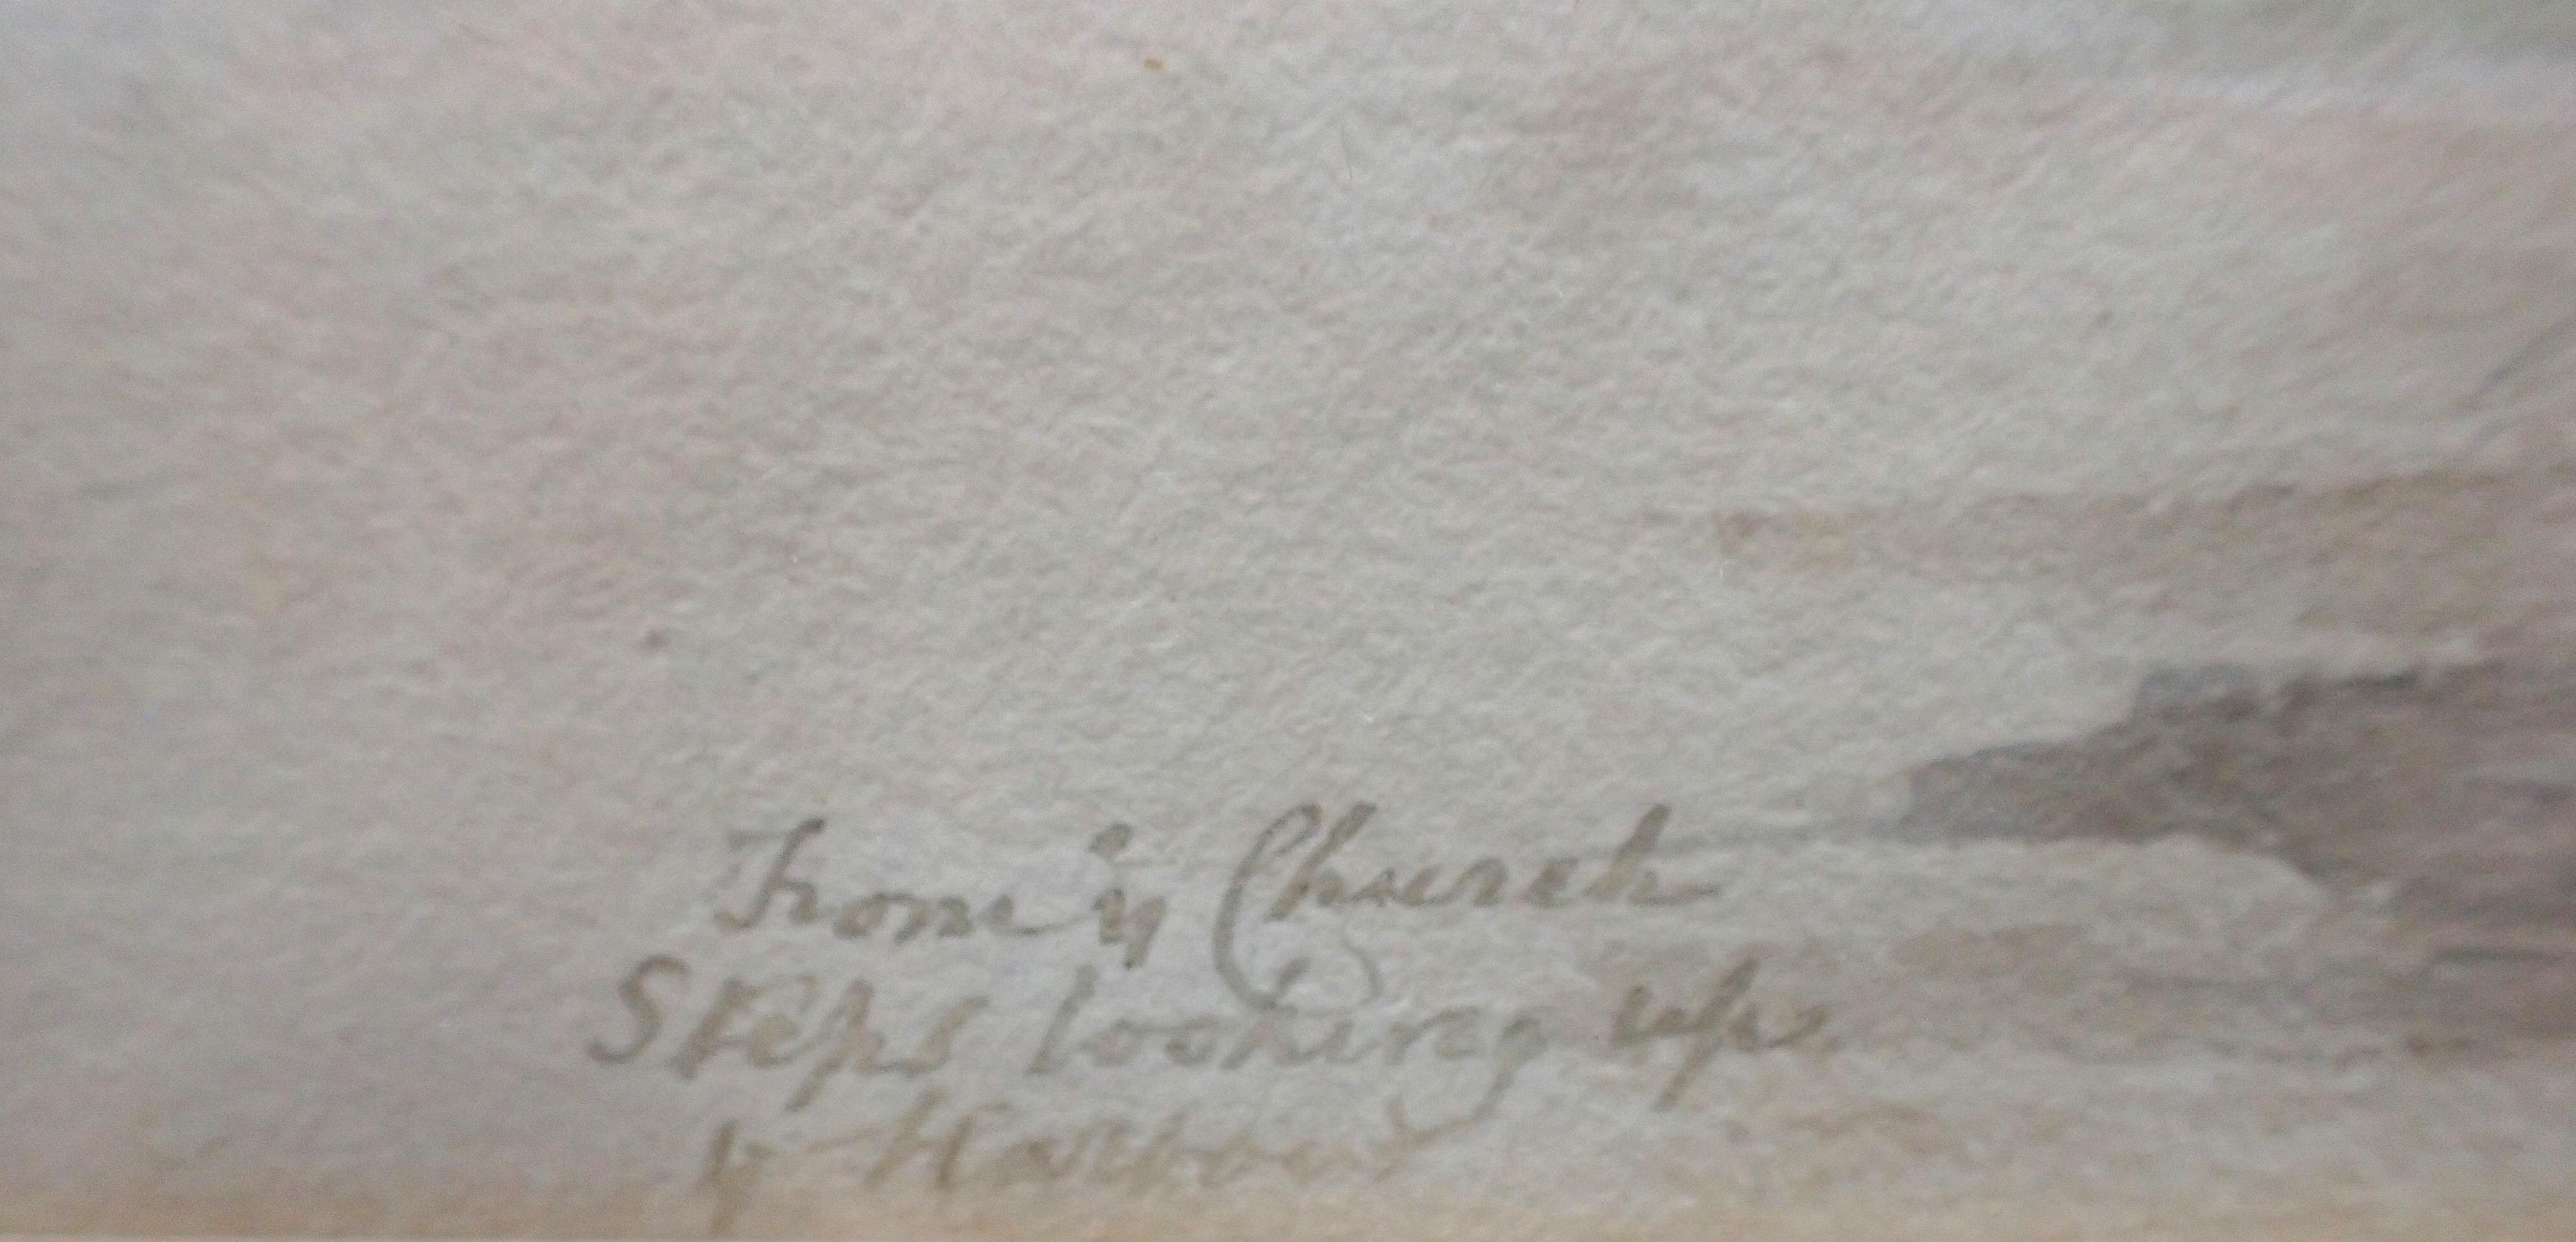 From yͤ Church
Steps looking up
y Harbour